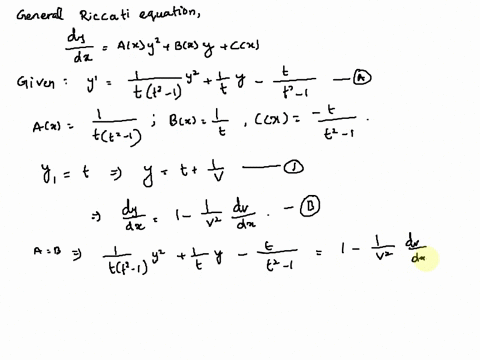 General Riccati equation,
dy/dx = A(x) y² + B(x) y + C(x)
Given : y' = 1/(t(t²-1)) y² + 1/t y - t/(t²-1) — Ⓐ
A(x) = 1/(t(t²-1)) ; B(x) = 1/t , C(x) = -t/(t²-1) .
y₁ = t ⇒ y = t + 1/v — ①
⇒ dy/dx = 1 - 1/v² dv/dx . — Ⓑ
A=B ⇒ 1/(t(t²-1)) y² + 1/t y - t/(t²-1) = 1 - 1/v² dv/dx